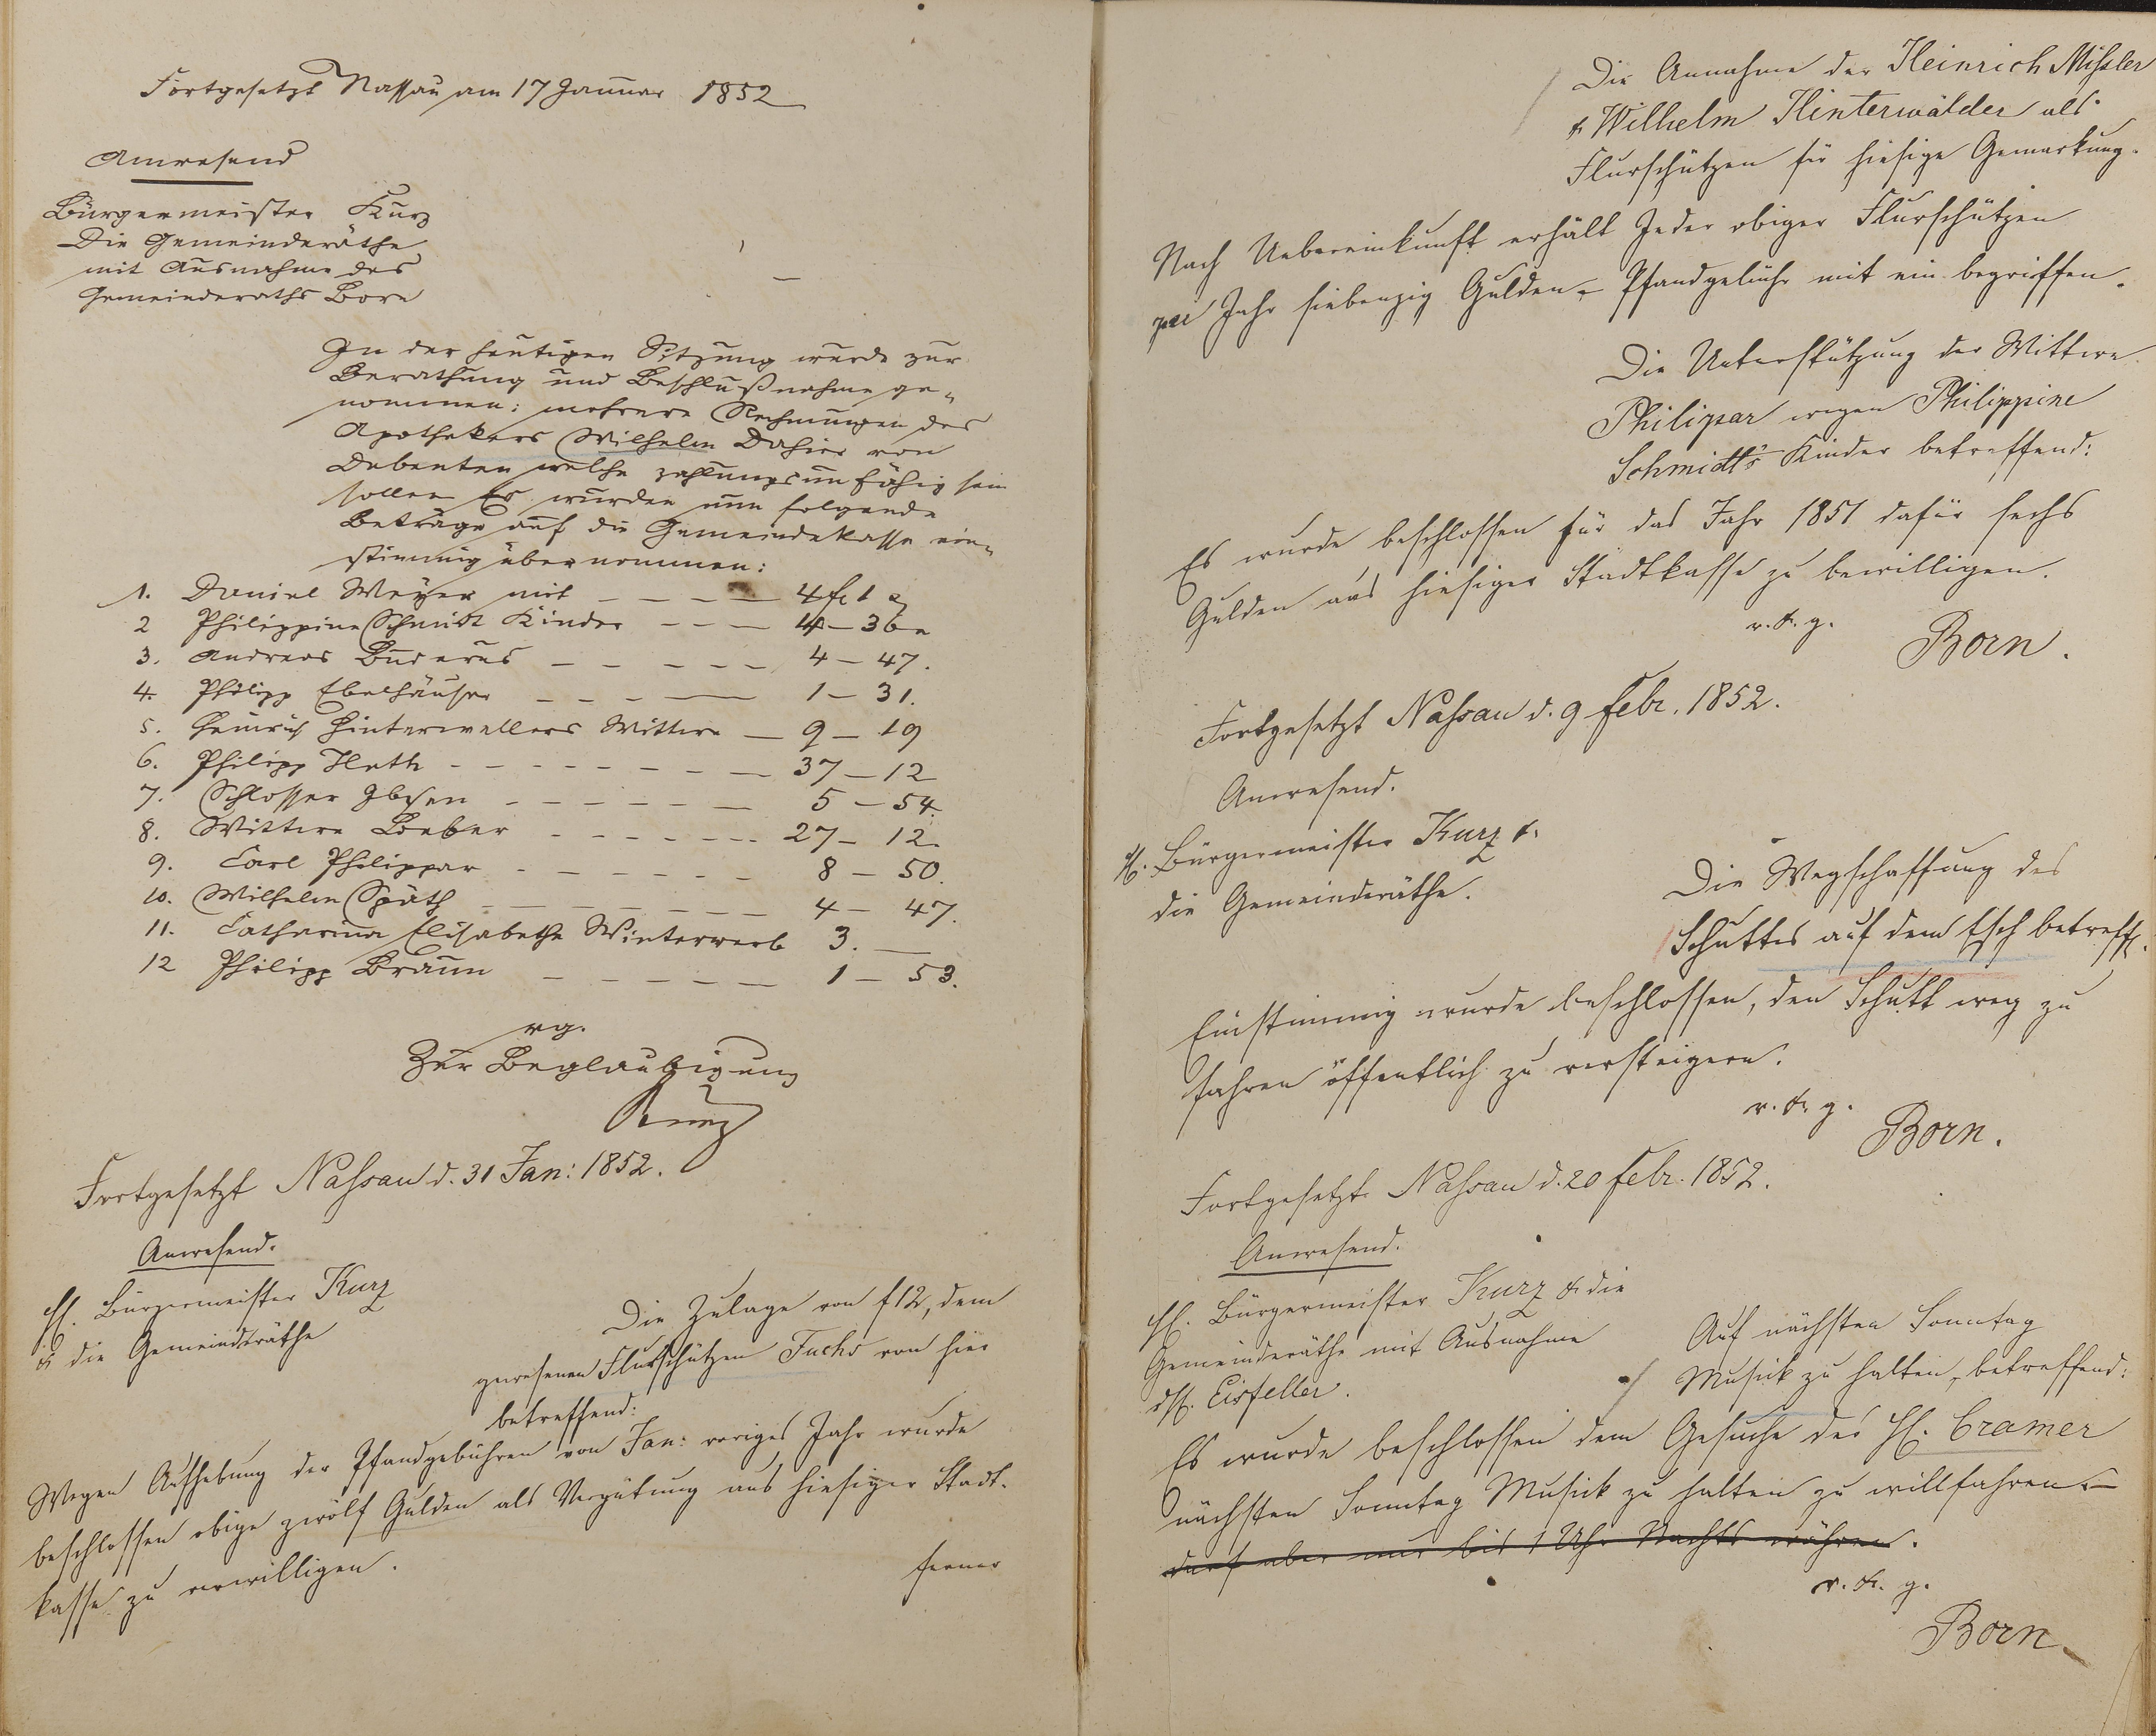 Fortgesetzt Nassau am 17 Januar 1852
Anwesend
Bürgermeister Kurz
Die Gemeinderäthe
mit Ausnahme des
Gemeinderaths Born
In der heutigen Sitzung wurde zur
Berathung und Beschlußnahme ge-
nommen: mehrere Rechnungen des
Apothekers Wilhelm Dahier von
Debenten welche zahlungsunfähig sein
sollen Es wurden nun folgende
Beträge auf die Gemeindekasse ein-
stimmig übernommen:
1. Daniel Meyer mit — — — — 4 f 1
2 Philippine Schmidt Kinder — — — 4 — 36
3. Andreas Buderus — — — — — 4 — 47.
4. Philipp Ebelhäuser — — — — 1 — 31.
5. Heinrich Hinterwellers Wittwe — 9 — 19
6. Philipp Huth — — — — — — 37 — 12
7. Schlosser — — — — — — 5 — 54.
8. Wittwe Loeber — — — — — — 27 — 12.
9. Carl Philippar — — — — — — 8 — 50.
10. Wilhelm Späth — — — — — — 4 — 47.
11. Catharina Elisabetha Winterwerb 3. —
12 Philipp Braun — — — — — 1 — 53.
vg.
Zur Beglaubigung
Kurz
Fortgesetzt Nassau d. 31 Jan: 1852.
Anwesend.
H. Bürgermeister Kurz
& die Gemeinderäthe
Die Zulage von f 12, dem
gewesenen Flurschützen Fuchs von hier
betreffend:
Wegen Aufhebung der Pfandgebühren von Jan: voriges Jahr wurde
beschlossen obige zwölf Gulden als Vergütung aus hiesiger Stadt-
kasse zu verwilligen.
ferner
Die Annahme der Heinrich Missler
& Wilhelm Hinterwälder als
Flurschützen für hiesige Gemarkung.
Nach Uebereinkunft erhält Jeder obiger Flurschützen
per Jahr siebenzig Gulden – Pfandgebühr mit ein begriffen.
Die Unterstützung der Wittwe
Philippar wegen Philippine
Schmidt's Kinder betreffend:
Es wurde beschlossen für das Jahr 1851 dafür sechs
Gulden aus hiesiger Stadtkasse zu bewilligen.
v. & g.
Born.
Fortgesetzt Nassau d. 9 Febr. 1852.
Anwesend.
H. Bürgermeister Kurz &
die Gemeinderäthe.
Die Wegschaffung des
Schuttes auf dem Esch betreff.
Einstimmig wurde beschlossen, den Schutt weg zu
fahren öffentlich zu versteigern.
v. & g.
Born.
Fortgesetzt Nassau d. 20 Febr. 1852.
Anwesend.
H. Bürgermeister Kurz & die
Gemeinderäthe mit Ausnahme
d H. Eisfeller.
Auf nächsten Sonntag
Musick zu halten, betreffend:
Es wurde beschlossen dem Gesuche des H. Cramer
nächsten Sonntag Musick zu halten zu willfahren –
darf aber nur bis 1 Uhr Nachts währen.
v. & g.
Born